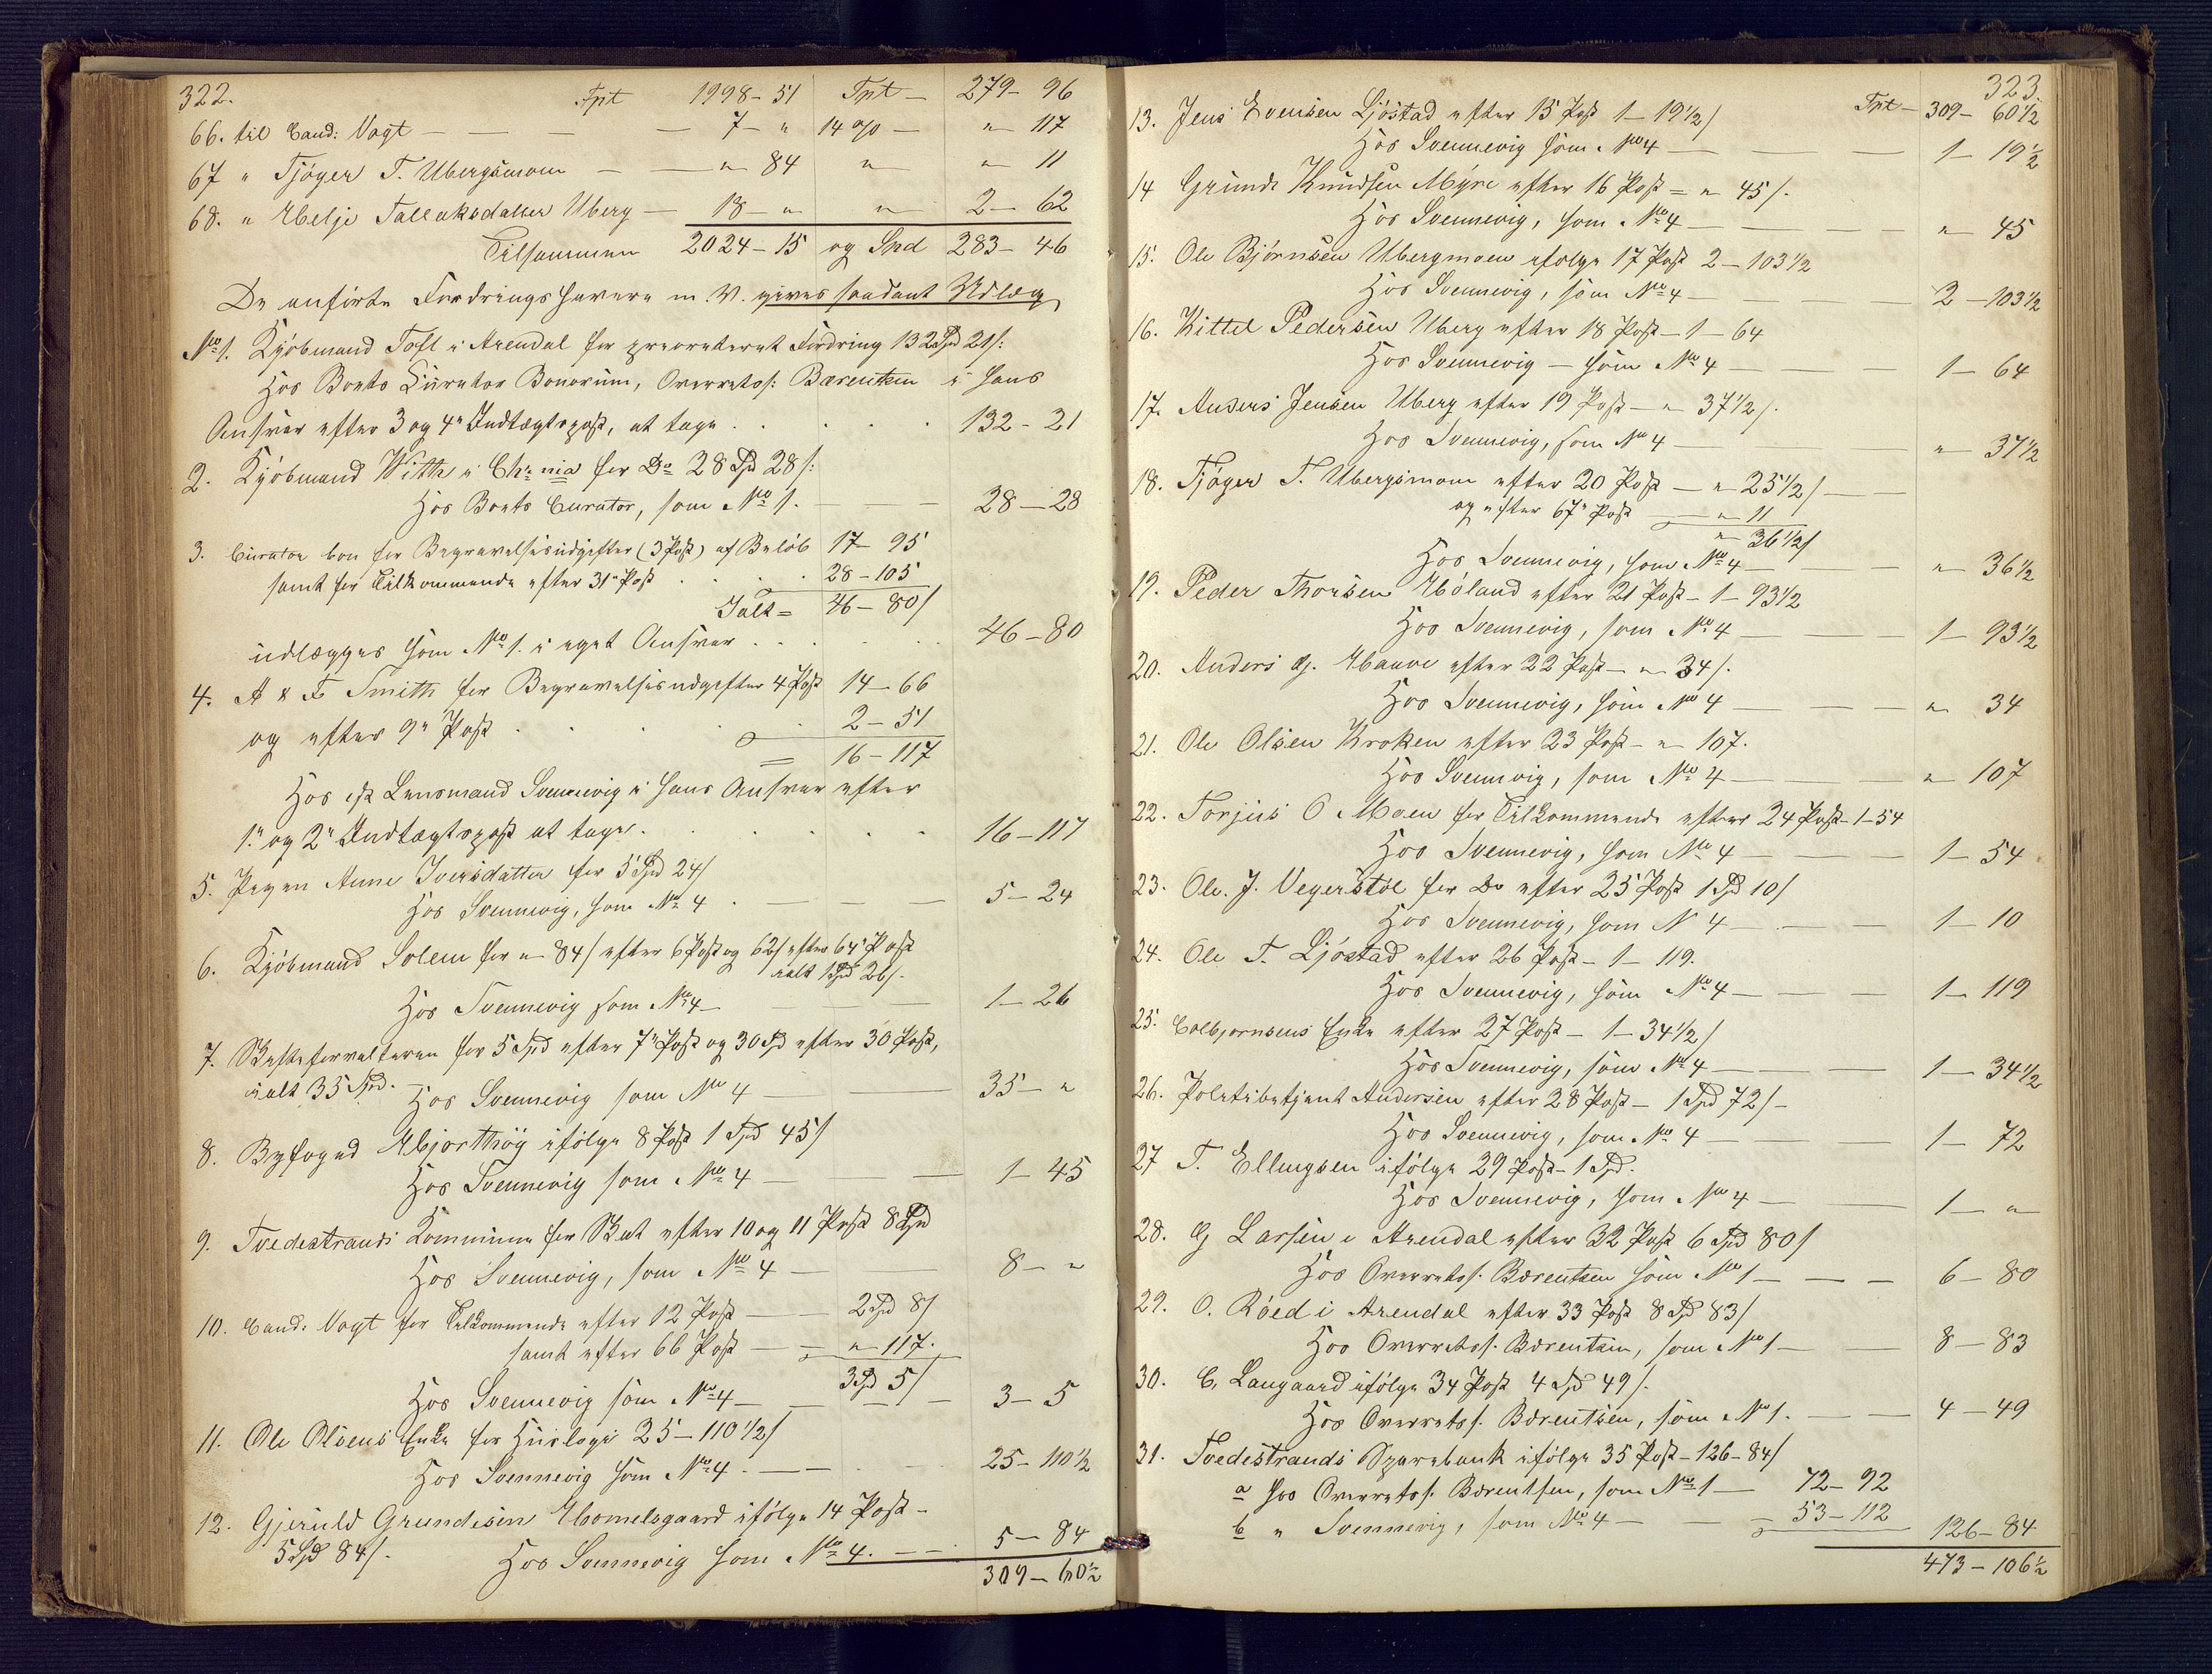 322.
Tpt 1998 - 51 Tpt - 279 - 96
66. til Cand: Vogt - - - 7 - " 14 % - " - 117
67 " Tjöger T. Ubergsmoen - - " - 84 " " - 11
68. " Helje Tallaksdatter Uberg - 18 - " " 2 - 62
Tilsammen 2024 - 15 og Spd 283 - 46
De anførte Fordringshavere m. V. gives saadant Udlæg
No 1. Kjöbmand Toft i Arendal for prioriteret Fordring 132 Spd 21 s:
Hos Boets Curator Bonorum, Overretss: Bærentsen i hans
Ansvar efter 3 og 4de Indtægtspost, at tage . . . . . 132 - 21
2. Kjöbmand With i Chr:nia for Do 28 Spd 28 s:
Hos Boets Curator, som No 1. - - 28 - 28
3. Curator bon for Begravelsesudgifter (3 Post) af Beløb 17 - 95
samt for Tilkommende efter 31te Post . . . . 28 - 105
Ialt = 46 - 80 s
udlægges som No 1. i eget Ansvar . . . . 46 - 80
4. A & E Smith for Begravelsesudgifter 4 Post 14 - 66
og efter 9de Post . . . . 2 - 51
= 16 - 117
Hos Lensmand Svennevig i hans Ansvar efter
1te og 2den Indtægtspost at tage . . . . . 16 - 117
5. Pigen Anne Iversdatter for 5 Spd 24 s
Hos Svennevig, som No 4 . - - 5 - 24
6. Kjöbmand Solem for " - 84 s efter 6 Post og 62 s efter 64de Post
ialt 1 Spd 26 s.
Hos Svennevig som No 4 - - - 1 - 26
7. Skifteforvalteren for 5 Spd efter 7de Post og 30 Spd efter 30 Post,
ialt 35 Spd. Hos Svennevig som No 4 - - 35 - "
8. Byfoged Hjorthög ifölge 8 Post 1 Spd 45 s
Hos Svennevig som No 4 - - 1 - 45
9. Tvedestrands Kommune for Skat efter 10 og 11 Post 8 Spd
Hos Svennevig, som No 4 - - 8 - "
10. Cand: Vogt for Tilkommende efter 12 Post - - 2 Spd 8 s
samt efter 66 Post - - " - 117.
3 Spd 5 s
Hos Svennevig som No 4 - - - - 3 - 5
11. Ole Olsens Enke for Husleje 25 - 110 1/2 s
Hos Svennevig som No 4. - - - 25 - 110 1/2
12. Gjeruld Grundesen Homelsgaard ifölge 14 Post -
5 Spd 84 s. Hos Svennevig som No 4. - - 5 - 84
309 - 60 1/2
323.
Tpt - 309 - 60 1/2
13. Jens Evensen Ljöstad efter 15 Post 1 - 19 1/2 s
Hos Svennevig som No 4 - - - 1 - 19 1/2
14 Grunde Knudsen Myre efter 16 Post = " 45 s.
Hos Svennevig, som No 4 - - - " 45
15. Ole Björnsen Ubergmoen ifölge 17 Post 2 - 103 1/2
Hos Svennevig, som No 4 - - - 2 - 103 1/2
16. Kittel Pedersen Uberg efter 18 Post - 1 - 64
Hos Svennevig - som No 4 - - - 1 - 64
17. Anders Jensen Uberg efter 19 Post - " 37 1/2 s.
Hos Svennevig, som No 4 - - " - 37 1/2
18. Tjöger T. Ubergsmoen efter 20 Post - " - 25 1/2 s - -
og efter 67de Post - " - 11
" - 36 1/2 s
Hos Svennevig, som No 4 - - - " - 36 1/2
19. Peder Thorsen Höland efter 21 Post - 1 - 93 1/2
Hos Svennevig, som No 4 - - - 1 - 93 1/2
20. Anders G. Hauve efter 22 Post - " - 34 s.
Hos Svennevig, som No 4 - - - " 34
21. Ole Olsen Kroken efter 23 Post - " - 107.
Hos Svennevig, som No 4 - - - " 107
22. Torjus O Moen for Tilkommende efter 24 Post - 1 - 54
Hos Svennevig, som No 4 - - - 1 - 54
23. Ole. J. Vegerstöl for Do efter 25 Post 1 Spd 10 s
Hos Svennevig, som N 4 - - - 1 - 10
24. Ole T. Ljöstad efter 26 Post - 1 - 119.
Hos Svennevig, som No 4 - - - 1 - 119
25. Colbjornsens Enke efter 27 Post - 1 - 34 1/2 s
Hos Svennevig, som No 4 - - - 1 - 34 1/2
26. Politibetjent Andersen efter 28 Post - 1 Spd 72 s -
Hos Svennevig, som No 4 - - - 1 - 72
27 T. Ellingsen ifölge 29 Post - 1 Spd.
Hos Svennevig, som No 4 - - 1 - "
28. G Larsen i Arendal efter 32 Post 6 Spd 80 s
Hos Overretss. Bærentsen som No 1 - - - 6 - 80
29. O. Röed i Arendal efter 33 Post 8 Spd 83 s
Hos Overretss. Bærentsen, som No 1 - - 8 - 83
30. C, Langaard ifölge 34 Post 4 Spd 49 s.
Hos Overretss. Bærentsen, som No 1. - - 4 - 49
31. Tvedestrands Sparebank ifölge 35 Post - 126 - 84 s
a hos Overretss. Bærentsen, som No 1 - 72 - 92
b " Svennevig, som No 4 - - - 53 - 112 126 - 84
473 - 106 1/2